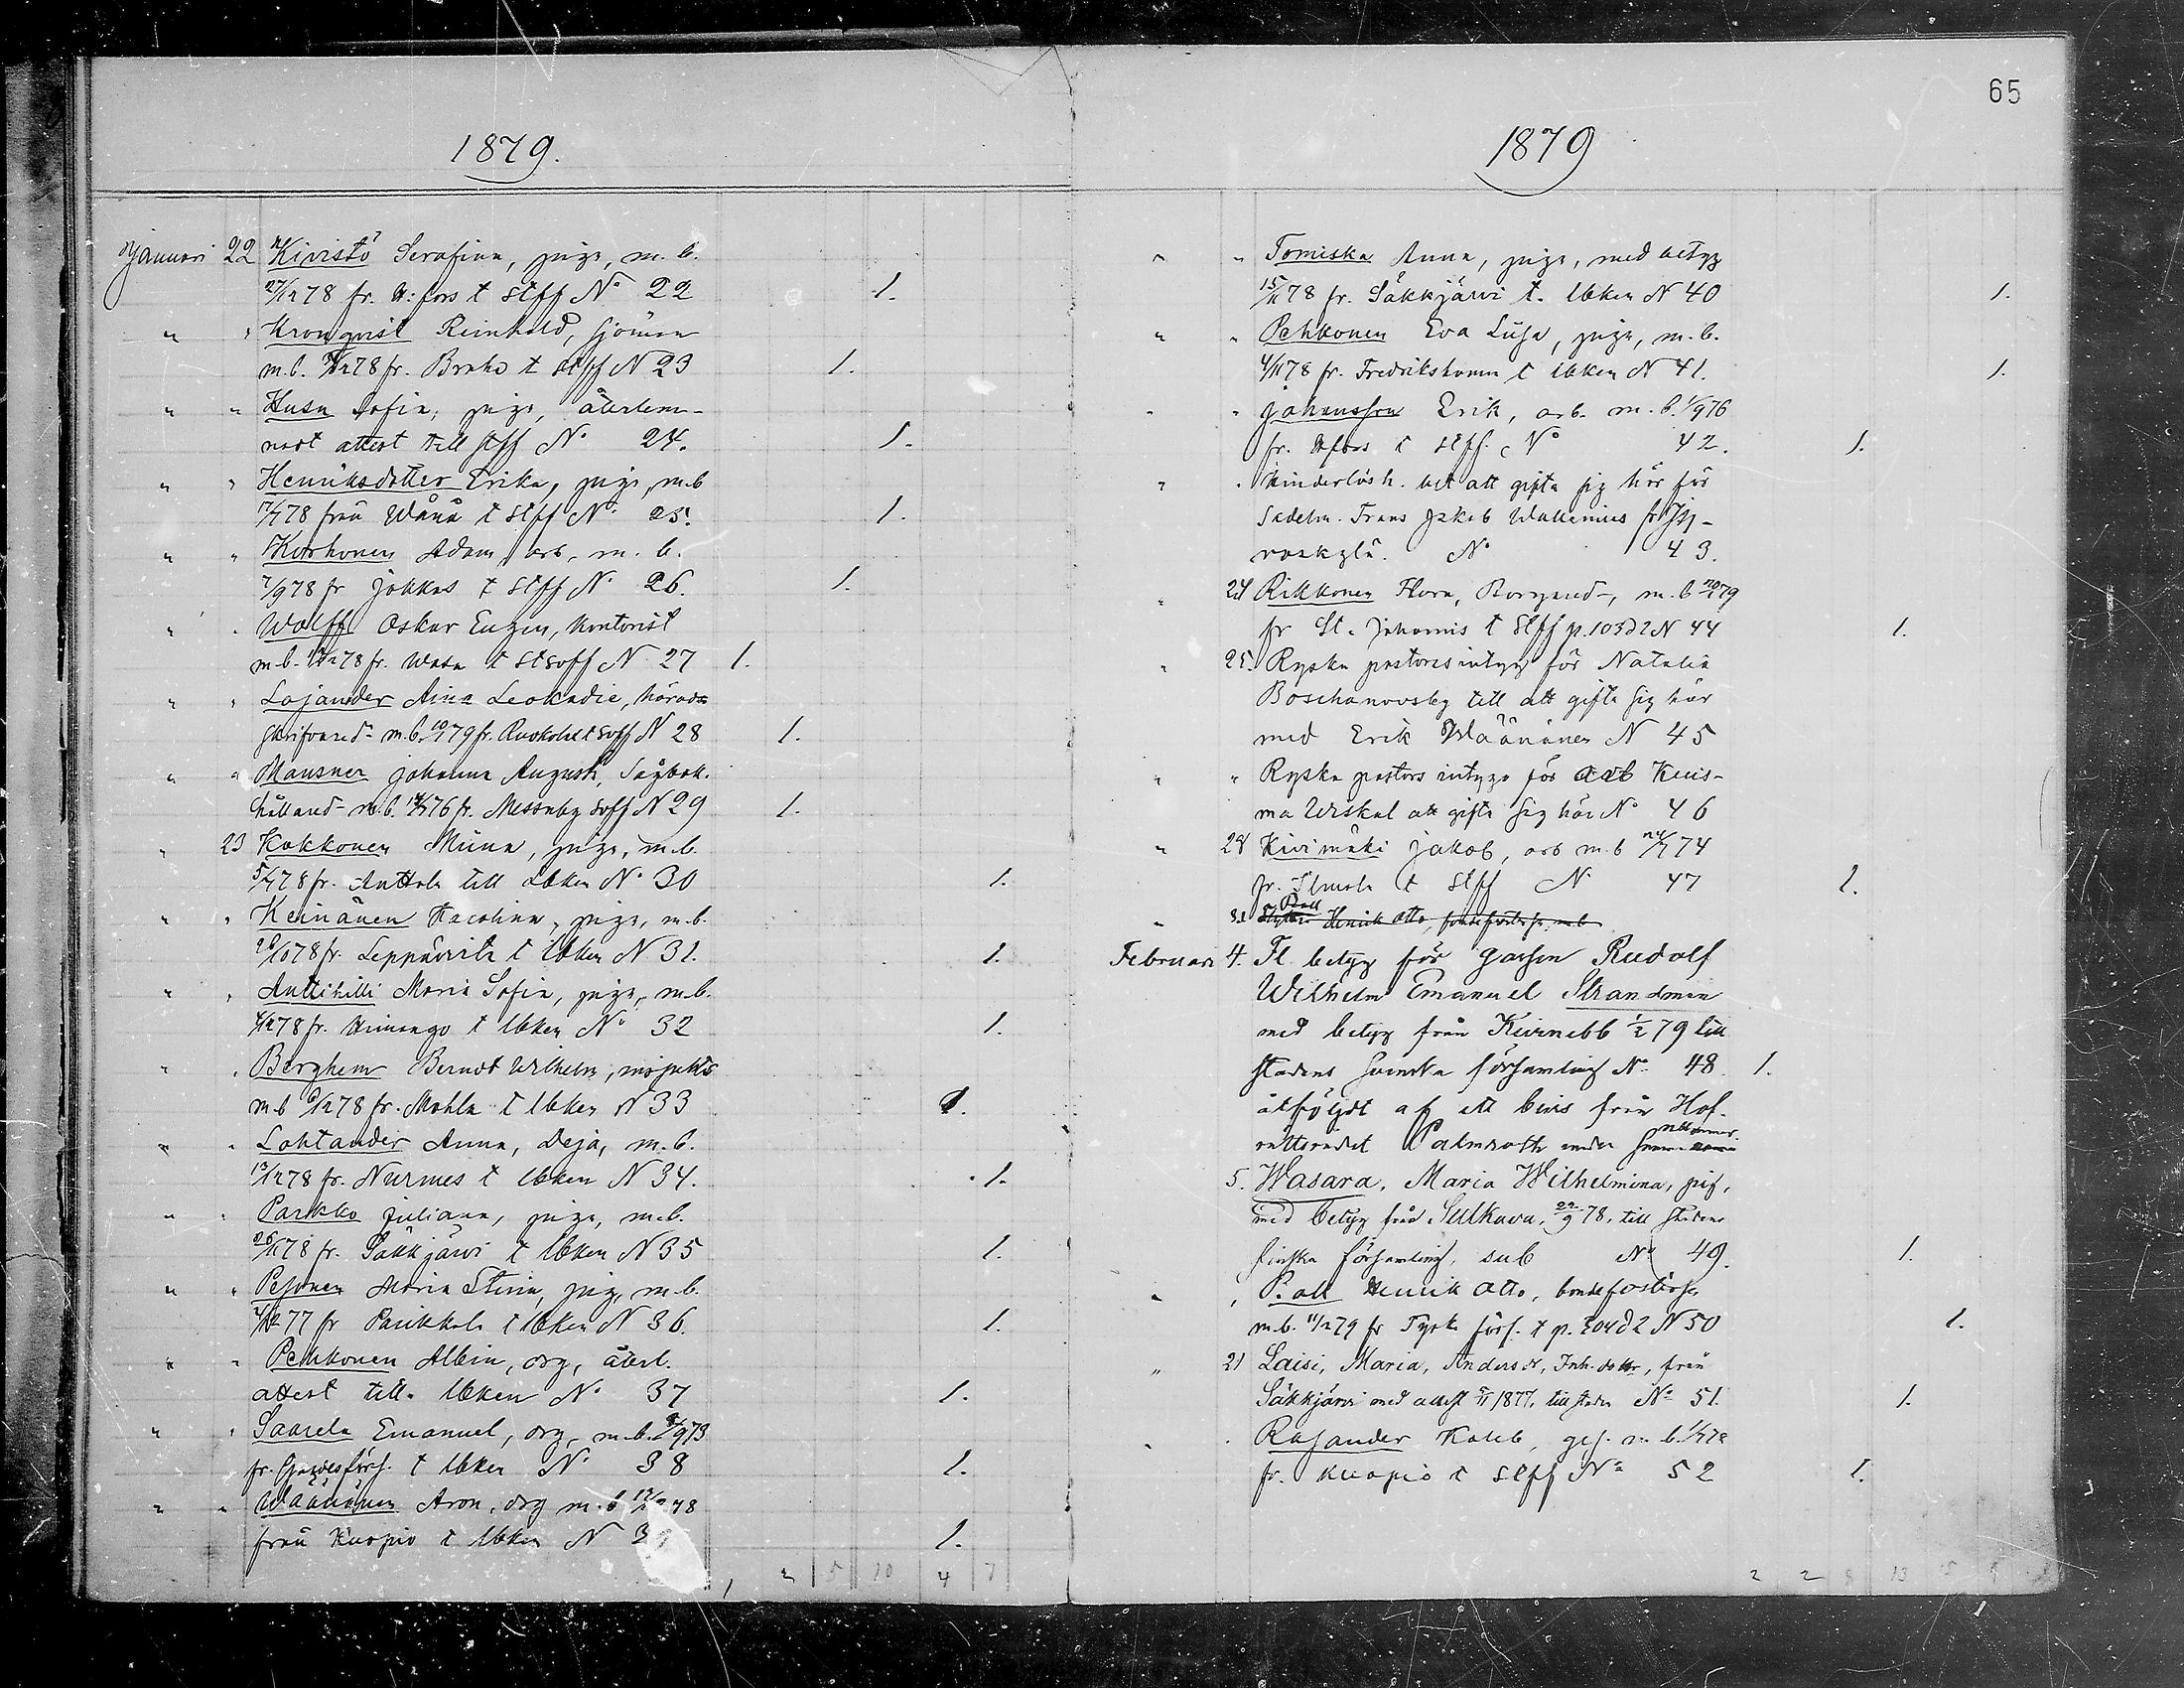 65
1879.
Januari 22 Kivistö Serafina, piga, m. b.
27/12 78 fr. H:fors t stff No 22 1.
" " Kronqvist Reinhold, sjöman
m.b. 12 78 fr. Brahe t stff N 23 1.
" " Husu Sofia, piga, återlem-
nadt attest till stff No 24. 1.
" " Henriksdotter Erika, piga, m.b
78 från Wånå t stff No 25. 1.
" " Korhonen Adam, arb, m. b.
7/9 78 fr Jokkas t stff No 26. 1.
" " Wolff Oskar Eugen, kontorist
m.b. 12 78 fr. Wasa t stsvff N 27 1.
" " Lojander Aina Leokadie, härads
skrifvared- m.b. 79 fr. Ruokolat svff N 28 1.
" " Mausner Johanna August, Sågbok-
hålland- m.b. 76 fr. Messuby svff N 29 1.
" 23 Kokkonen Miina, piga, m.b.
78 fr. Anttola till lbken No 30 1.
" " Keinänen Karolina, piga, m.b.
10 78 fr. Leppävirta t lbken N 31. 1.
" " Anttihilli Maria Sofia, piga, m.b.
12 78 fr. Himango t lbken No 32 1.
" " Berghem Berndt Wilhelm, inspektor
m.b 12 78 fr. Mohla t lbken N 33 1.
" " Lohtander Anna, Deja, m.b.
13/12 78 fr. Nurmes t lbken N 34. 1.
" " Parkko Juliana, piga, m.b.
26/11 78 fr. Säkkjärvi t lbken N 35 1.
" " Pesonen Maria Stina, pig, m.b.
12 77 fr Parikkala t lbken N 36. 1.
" " Pehkonen Albin, drg, återl.
attest till lbken No 37 1.
" " Saarela Emanuel, drg, m.b. 9 73
fr. förs. t lbken No 38 1.
" " Wäänänen Aron, drg m.b 78
från Kuopio t lbken N 39 1.
1 2 5 10 4 7
1879
" " Tomiska Anna, piga, med betyg
15/11 78 fr. Säkkjärvi t. lbken N 40 1.
" " Pehkonen Eva Lisa, piga, m.b.
4/11 78 fr. Fredrikshamn t lbken N 41. 1.
" " Johansson Erik, arb. m.b. 1/9 76
fr. Hfors t stff. No 42. 1.
" " Hinderlösh. bet att gifta sig här för
Sadelm. Frans Jakob Wallenius fr Jy-
väskylä. No 43.
" 24 Rikkonen Flora, Borgared-, m.b 79
fr St. Johannis t stff p.103 d 2 N 44 1.
" 25. Ryska pastorsintyg för Natalia
Boschanovsky till att gifta sig här
med Erik Wäänänen N 45
" " Ryska pastors intyg för arb Kuis-
ma Uiskal att gifta sig här No 46
" 28 Kivimäki Jakob, arb m.b 74
fr. Ilmola t stff No 47 1.
" 31 Pall Henrik Otto, m.b
Februari 4. Fl. betyg för garson Rudolf
Wilhelm Emanuel Strandman
med betyg från Kivinebb 1/2 79 till
stadens svenska församling No 48. 1.
åtföljdt af ett bevis från Hof-
rättsrådet Palmroth under samma nummer.
5. Wasara, Maria Wilhelmina, pig,
med betyg från Sulkava, 9 78, till stadens
finska församling, sub No 49. 1.
" " Pall Henrik Otto, bondefosters
m.b. 11/2 79 fr Tyska förs. t p. 304 d 2 N 50 1.
" 21 Laisi, Maria, Andersdr, Inh. dotter, från
Säkkjärvi med attest 1877, till staden No 51. 1.
" " Rasander Kaleb, ges. m.b. 78
fr. Kuopio t stff No 52 1.
2 2 8 13 5